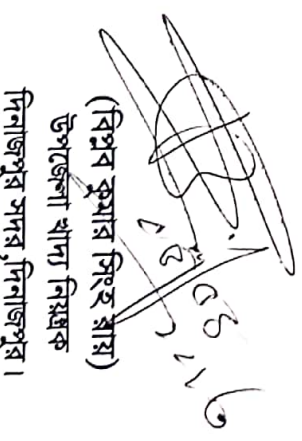 (বিপ্লব কুমার সিংহ রায়)
উপজেলা খাদ্য নিয়ন্ত্রক
দিনাজপুর সদর,দিনাজপুর।